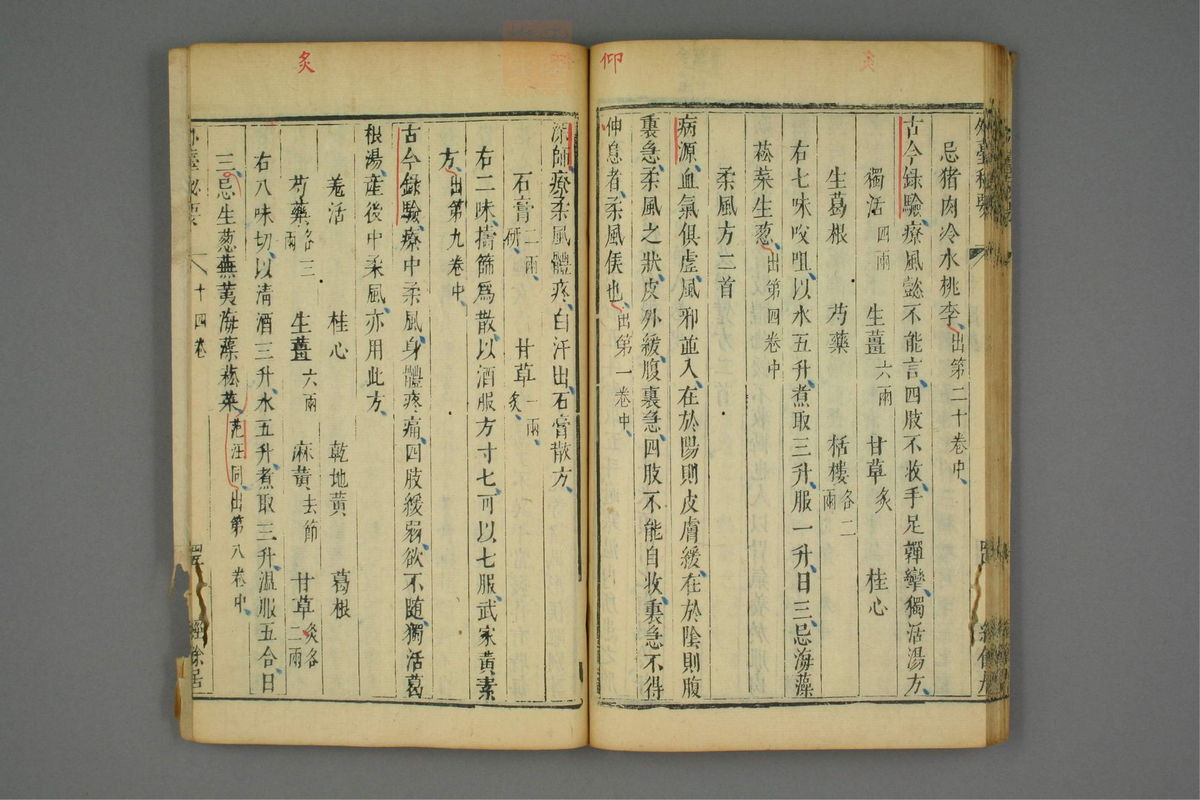 仰
忌猪肉冷水桃李出第二十卷中
古今録驗療風懿不能言四肢不收手足嚲攣獨活湯方
獨活四兩 生薑六兩 甘草炙 桂心
生葛根 芍藥 栝樓各二兩
右七味㕮咀以水五升煮取三升服一升日三忌海藻
菘菜生葱出第四卷中
柔風方二首
病源血氣俱虛風邪並入在於陽則皮膚緩在於陰則腹
裏急柔風之狀皮外緩腹裏急四肢不能自收裏急不得
仲息者柔風候也出第一卷中
炙
深師療柔風體疼白汗出石膏散方
石膏二兩研 甘草一兩炙
右二味擣篩爲散以酒服方寸七可以七服武家黄素
方出第九卷中
古今録驗療中柔風身體疼痛四肢緩弱欲不随獨活葛
根湯産後中柔風亦用此方
羌活 桂心 乾地黄 葛根
芍藥各三兩 生薑六兩 麻黄去節 甘草炙各二兩
右八味切以清酒三升水五升煮取三升温服五合日
三忌生葱蕪荑海藻菘菜范汪同出第八卷中
外臺秘要 十四卷 經餘居